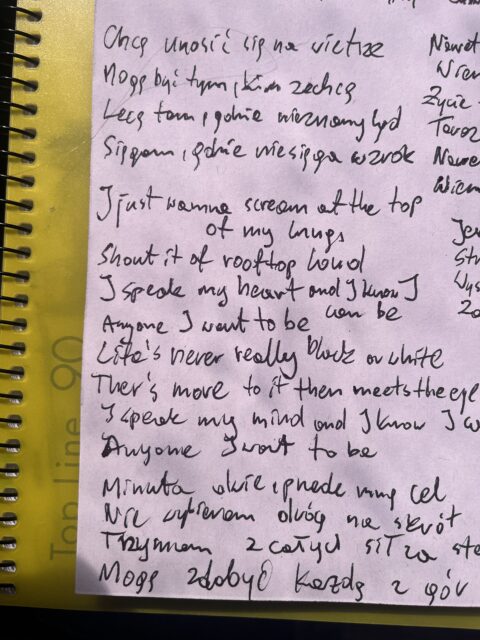 Chcę unosić się na wietrze
Mogę być tym, kim zechcę
Lecę tam, gdzie nieznany ląd
Sięgam, gdzie nie sięga wzrok
I just wanna scream at the top
of my lungs
Shout it of rooftop loud
I speak my heart and I know I
can be
Anyone I want to be
Life's never really black or white
Ther's more to it then meets the eye
I speak my mind and I know I
Anyone I want to be
Minuta, dwie, przede mną cel
Nie wybieram dróg na skrót
Trzymam z całych sił za
Mogę zdobyć każdą z gór
Życie
Top Line 90